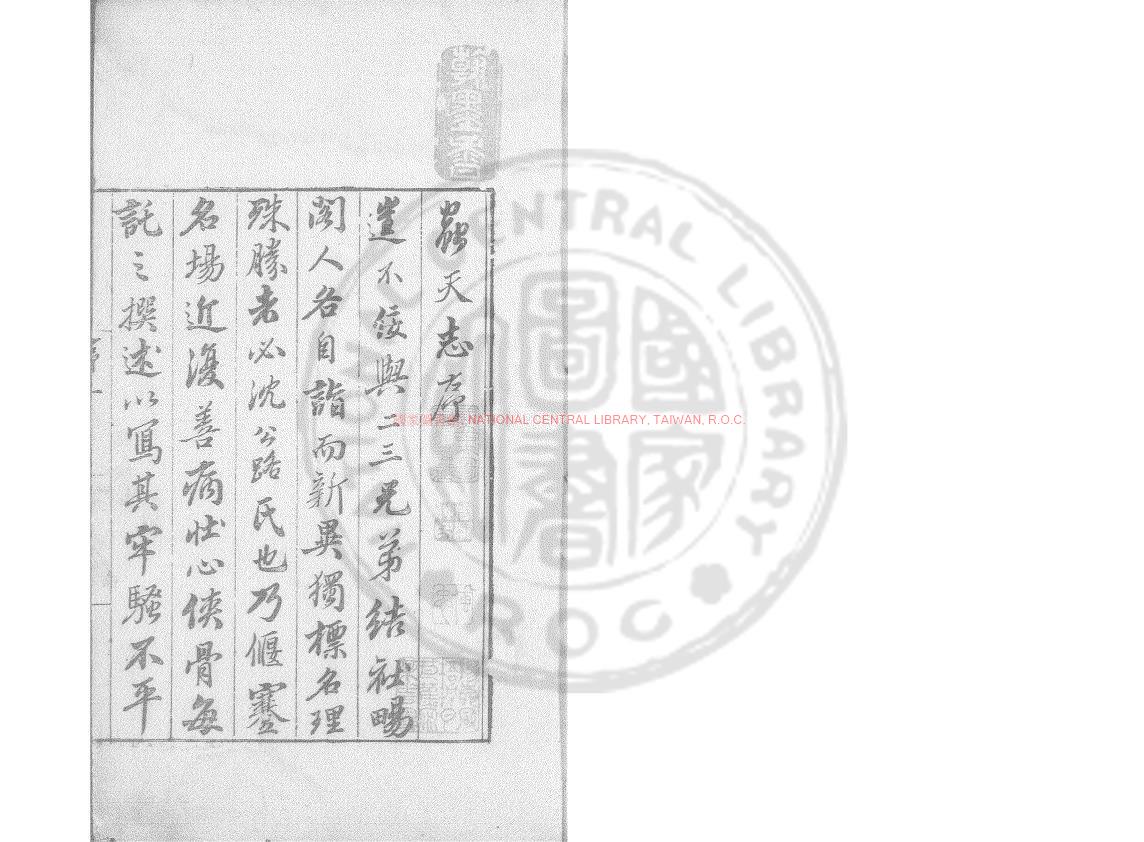 蟲天志序
邇不佞與二三兄弟結社暢
閣人各自詣而新異獨標名理
殊勝者必沈公路氏也乃偃蹇
名場近復善病壯心俠骨每
託之撰述以寫其牢騷不平
序
一
國家圖書館, NATIONAL CENTRAL LIBRARY, TAIWAN, R.O.C.
NATIONAL CENTRAL LIBRARY
R.O.C
國家圖書館